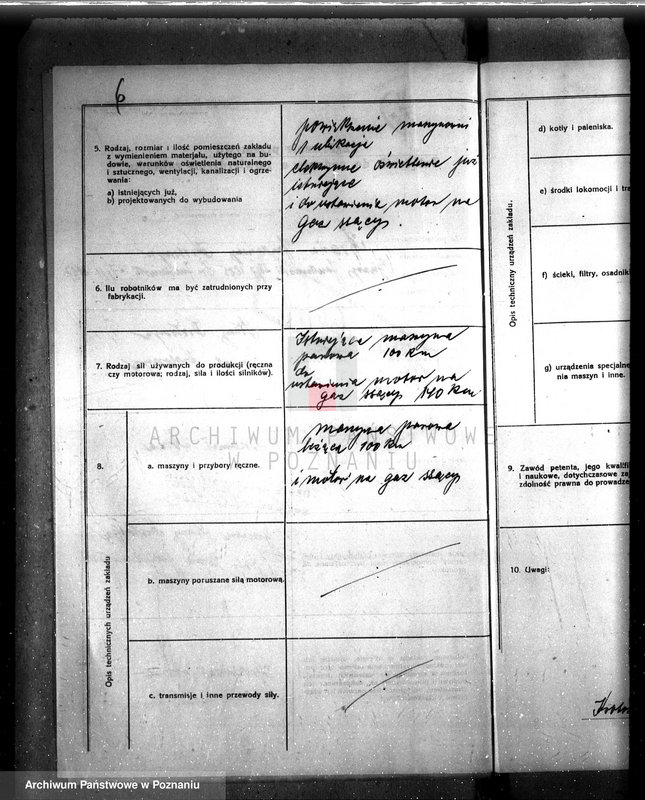 6
5. Rodzaj, rozmiar i ilość pomieszczeń zakładu
z wymienieniem materjału, użytego na bu-
dowie, warunków oświetlenia naturalnego
i sztucznego, wentylacji, kanalizacji i ogrze-
wania:
a) istniejących już,
b) projektowanych do wybudowania
powiększenie maszynowni
1 ubikacje
elektryczne oświetlenie już
istniejące
i do ustawienia motor na
gaz ssący.
6. Ilu robotników ma być zatrudnionych przy
fabrykacji.
7. Rodzaj sił używanych do produkcji (ręczna
czy motorowa; rodzaj, siła i ilości silników).
Istniejąca maszyna
parowa 100 km
do
ustawienia motor na
gaz ssący 140 km
8.
Opis technicznych urządzeń zakładu
a. maszyny i przybory ręczne.
maszyna parowa
leżąca 100 km
i motor na gaz ssący
b. maszyny poruszane siłą motorową.
c. transmisje i inne przewody siły.
Opis techniczny urządzeń zakładu.
d) kotły i paleniska.
e) środki lokomocji i tra
f) ścieki, filtry, osadnik
g) urządzenia specjalne
nia maszyn i inne.
9. Zawód petenta, jego kwalifi
i naukowe, dotychczasowe za
zdolność prawna do prowadze
10. Uwagi:
ARCHIWUM PAŃSTWOWE
W POZNANIU
Archiwum Państwowe w Poznaniu